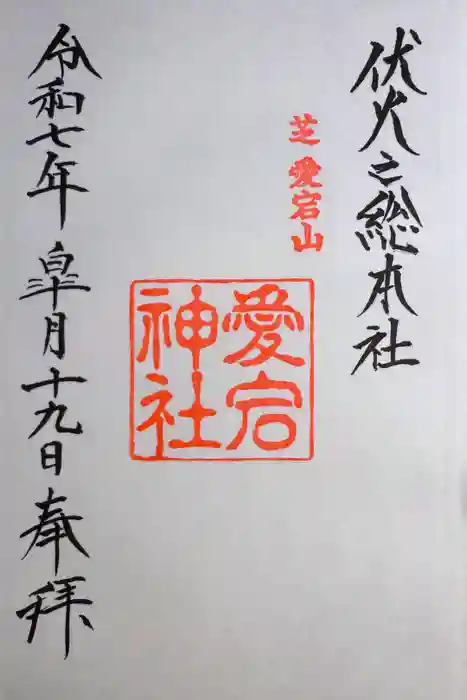 伏火之総本社
芝 愛宕山
愛宕
神社
令和七年 皐月十九日 奉拝